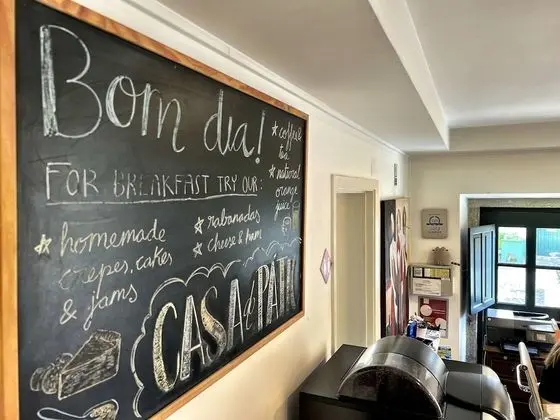 Bom dia!
FOR BREAKFAST TRY OUR:
homemade
crepes, cakes
& jams
rabanadas
cheese & ham
coffee
tea
natural
orange
juice
CASA do PÁTIO